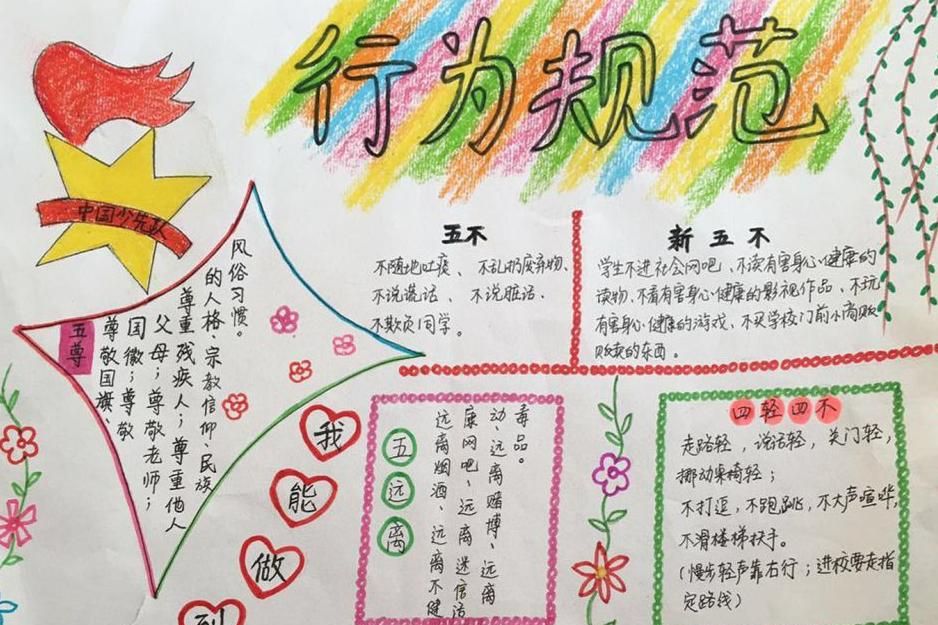 行为规范
中国少先队
五尊
尊敬国旗、
国徽；尊敬
父母；尊敬老师；
尊重残疾人；尊重他人
的人格、宗教信仰、民族
风俗习惯。
五不
不随地吐痰、不乱扔废弃物、
不说谎话、不说脏话、
不欺负同学。
新五不
学生不进社会网吧、不读有害身心健康的
读物、不看有害身心健康的影视作品、不玩
有害身心健康的游戏、不买学校门前小商贩
贩卖的东西。
我
能
做
到
五远离
远离烟酒、远离不健
康网吧、远离迷信活
动、远离赌博、远离
毒品。
四轻四不
走路轻，说话轻，关门轻，
挪动桌椅轻；
不打逗，不跑跳，不大声喧哗，
不滑楼梯扶手。
（慢步轻声靠右行；进校要走指
定路线）